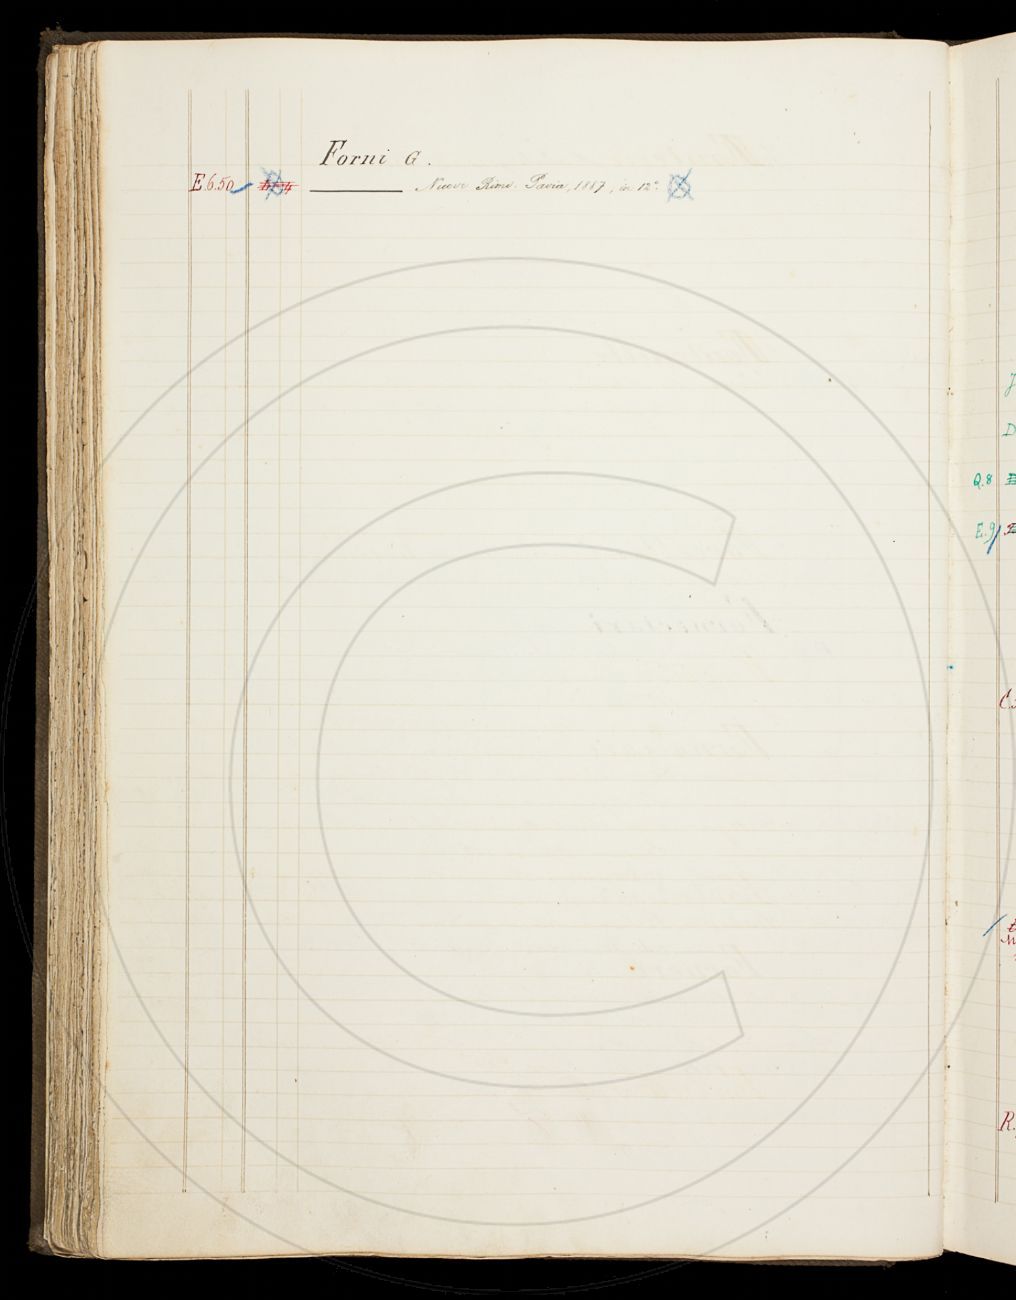 Forni G.
E.6.50 Nuove Rime. Pavia, 1887, in 12°.
Q.8
E.9